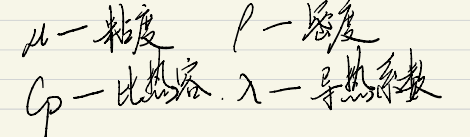 μ — 粘度 ρ — 密度
Cp — 比热容. λ — 导热系数